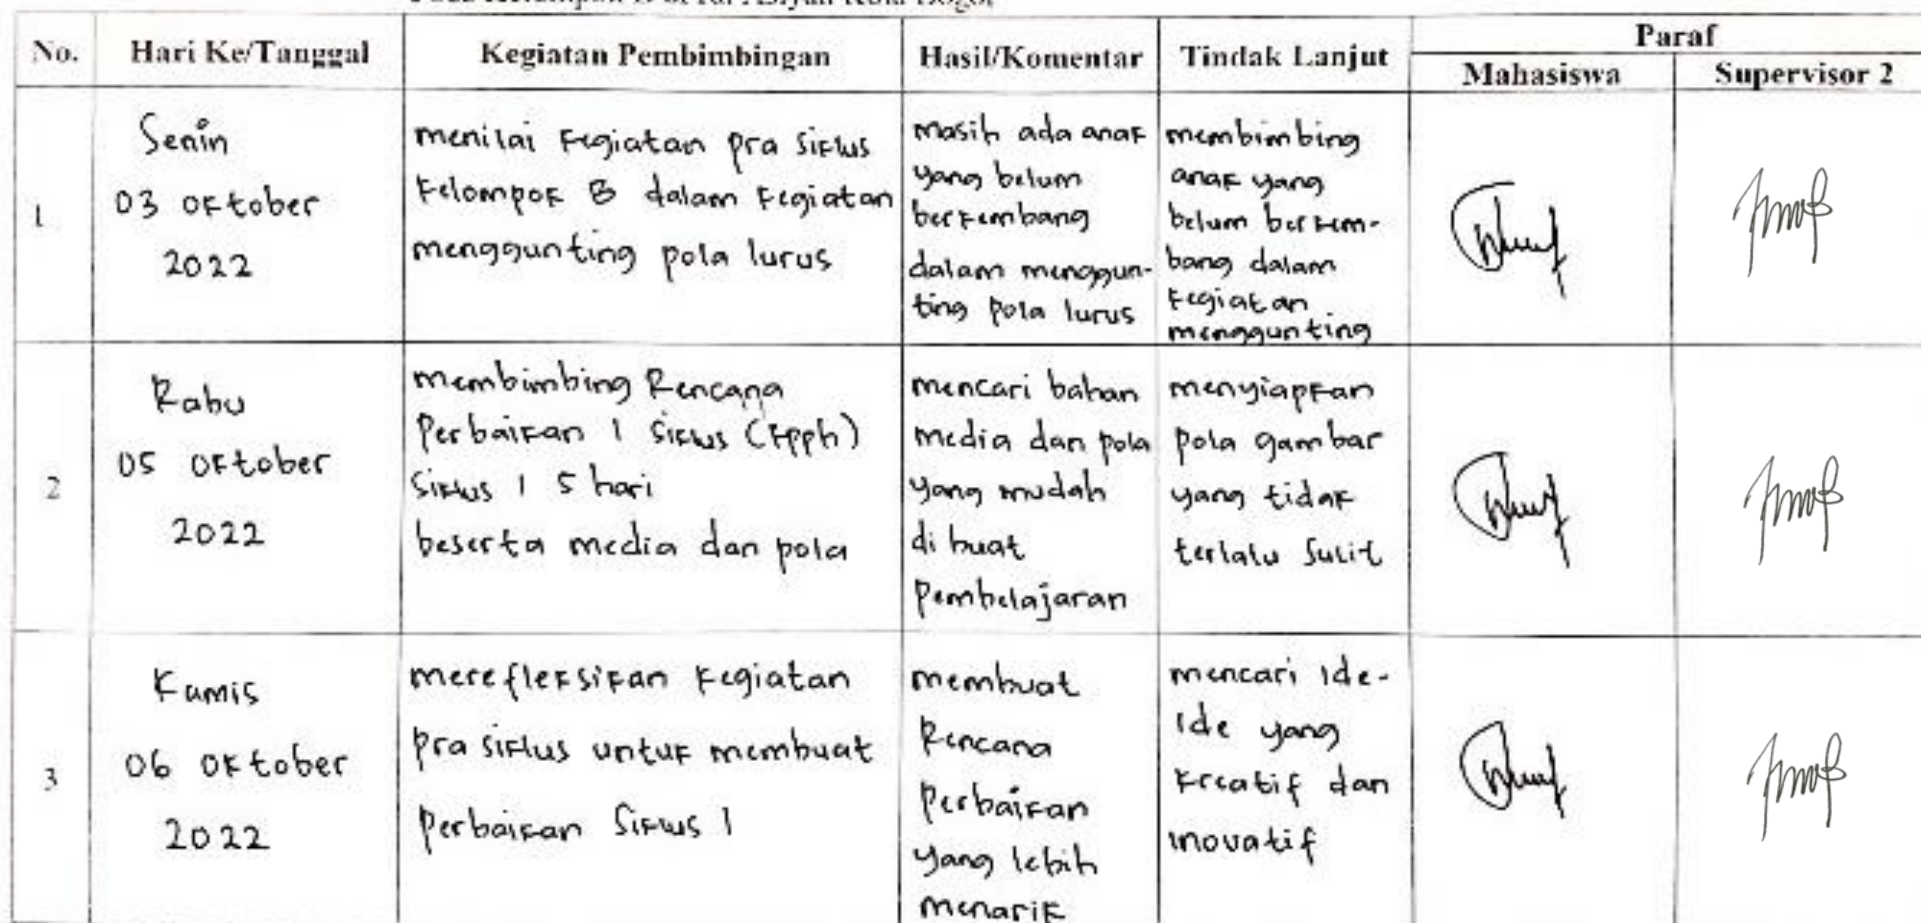 No. Hari Ke/Tanggal Kegiatan Pembimbingan Hasil/Komentar Tindak Lanjut Paraf
Mahasiswa Supervisor 2
1
Senin
03 Oktober
2022
menilai kegiatan pra siklus
kelompok B dalam kegiatan
menggunting pola lurus
masih ada anak
yang belum
berkembang
dalam menggun-
ting pola lurus
membimbing
anak yang
belum berkem-
bang dalam
kegiatan
menggunting
2
Rabu
05 Oktober
2022
membimbing Rencana
Perbaikan 1 Siklus (rpph)
Siklus 1 5 hari
beserta media dan pola
mencari bahan
media dan pola
yang mudah
di buat
Pembelajaran
menyiapkan
pola gambar
yang tidak
terlalu sulit
3
Kamis
06 Oktober
2022
merefleksikan kegiatan
pra siklus untuk membuat
Perbaikan Siklus 1
membuat
Rencana
Perbaikan
yang lebih
menarik
mencari ide-
ide yang
kreatif dan
inovatif